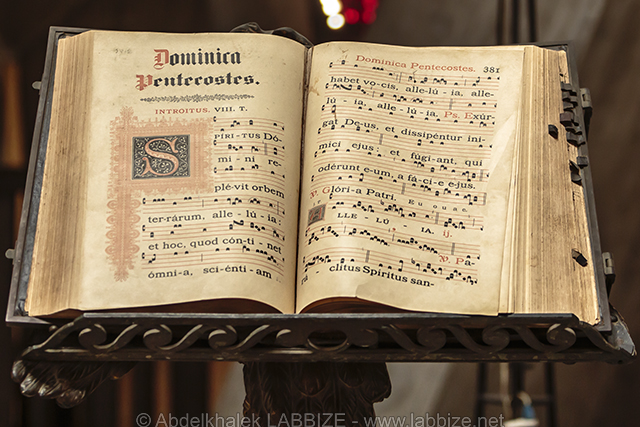 Dominica
Pentecostes.
INTROITUS. VIII. T.
SPIRI-TUS DÓ-
mi - ni re-
plé-vit orbem
ter-rárum, alle - lú - ia:
et hoc, quod cónti - net
ómni-a, sci-énti - am
Dominica Pentecostes. 381
habet vo-cis, alle-lú - ia, alle-
lú ia, alle-lú-ia. Ps. Exúr-
gat De-us, et dissipéntur ini-
míci ejus: et fúgi-ant, qui
odérunt e-um, a fáci-e ejus.
℣. Glóri-a Patri. E u o u a e.
ALLE - LÚ - IA. ij.
℣. Pa-
ra - clitus Spíritus san-
© Abdelkhalek LABBIZE - www.labbize.net